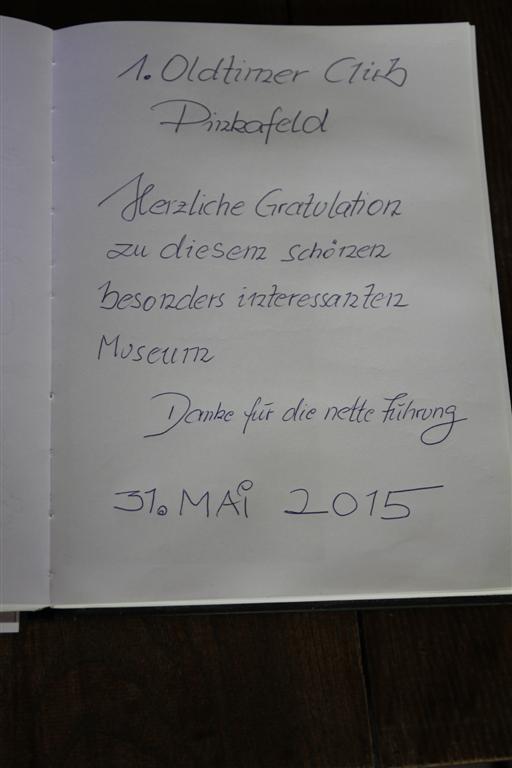 1. Oldtimer Club
Pinkafeld
Herzliche Gratulation
zu diesem schönen
besonders interessanten
Museum
Danke für die nette Führung
31. MAi 2015